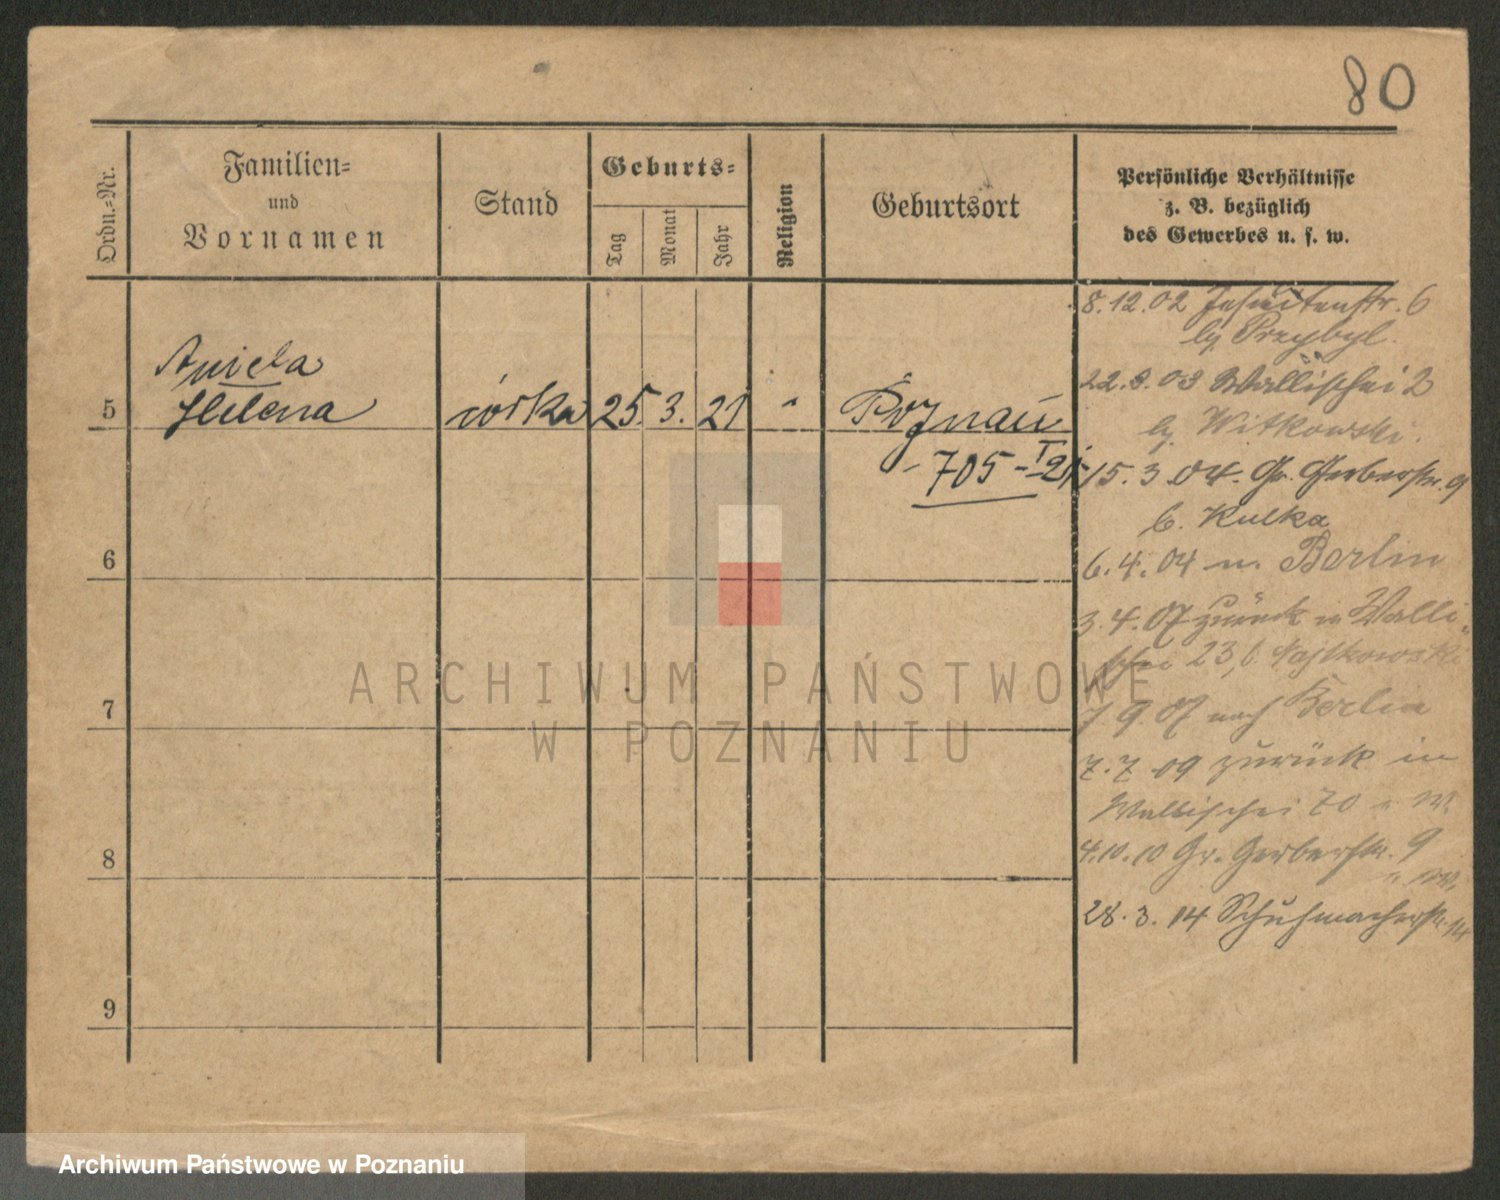 80
Ordn.-Nr.
Familien-
und
Vornamen
Stand
Geburts-
Tag
Monat
Jahr
Religion
Geburtsort
Persönliche Verhältnisse
z. B. bezüglich
des Gewerbes u. s. w.
Aniela
5 Helena córka 25. 3. 21 " Poznań
- 705 - I 21
6
7
8
9
8.12.02 Jesuitenstr. 6
by Przybyl.
22.3.03 Wallischei 2
by Witkowski.
15.3.04. Gr. Gerberstr. 9
b. Kulka
6.4.04 n. Berlin
3.4.07 zurück in Walli-
schei 23, b.
7 9 07 nach Berlin
7.7.09 zurück in
Wallischei 70
4.10.10 Gr. Gerberstr. 9
28.3.14 Schuhmacherstr. 14
ARCHIWUM PAŃSTWOWE
W POZNANIU
Archiwum Państwowe w Poznaniu